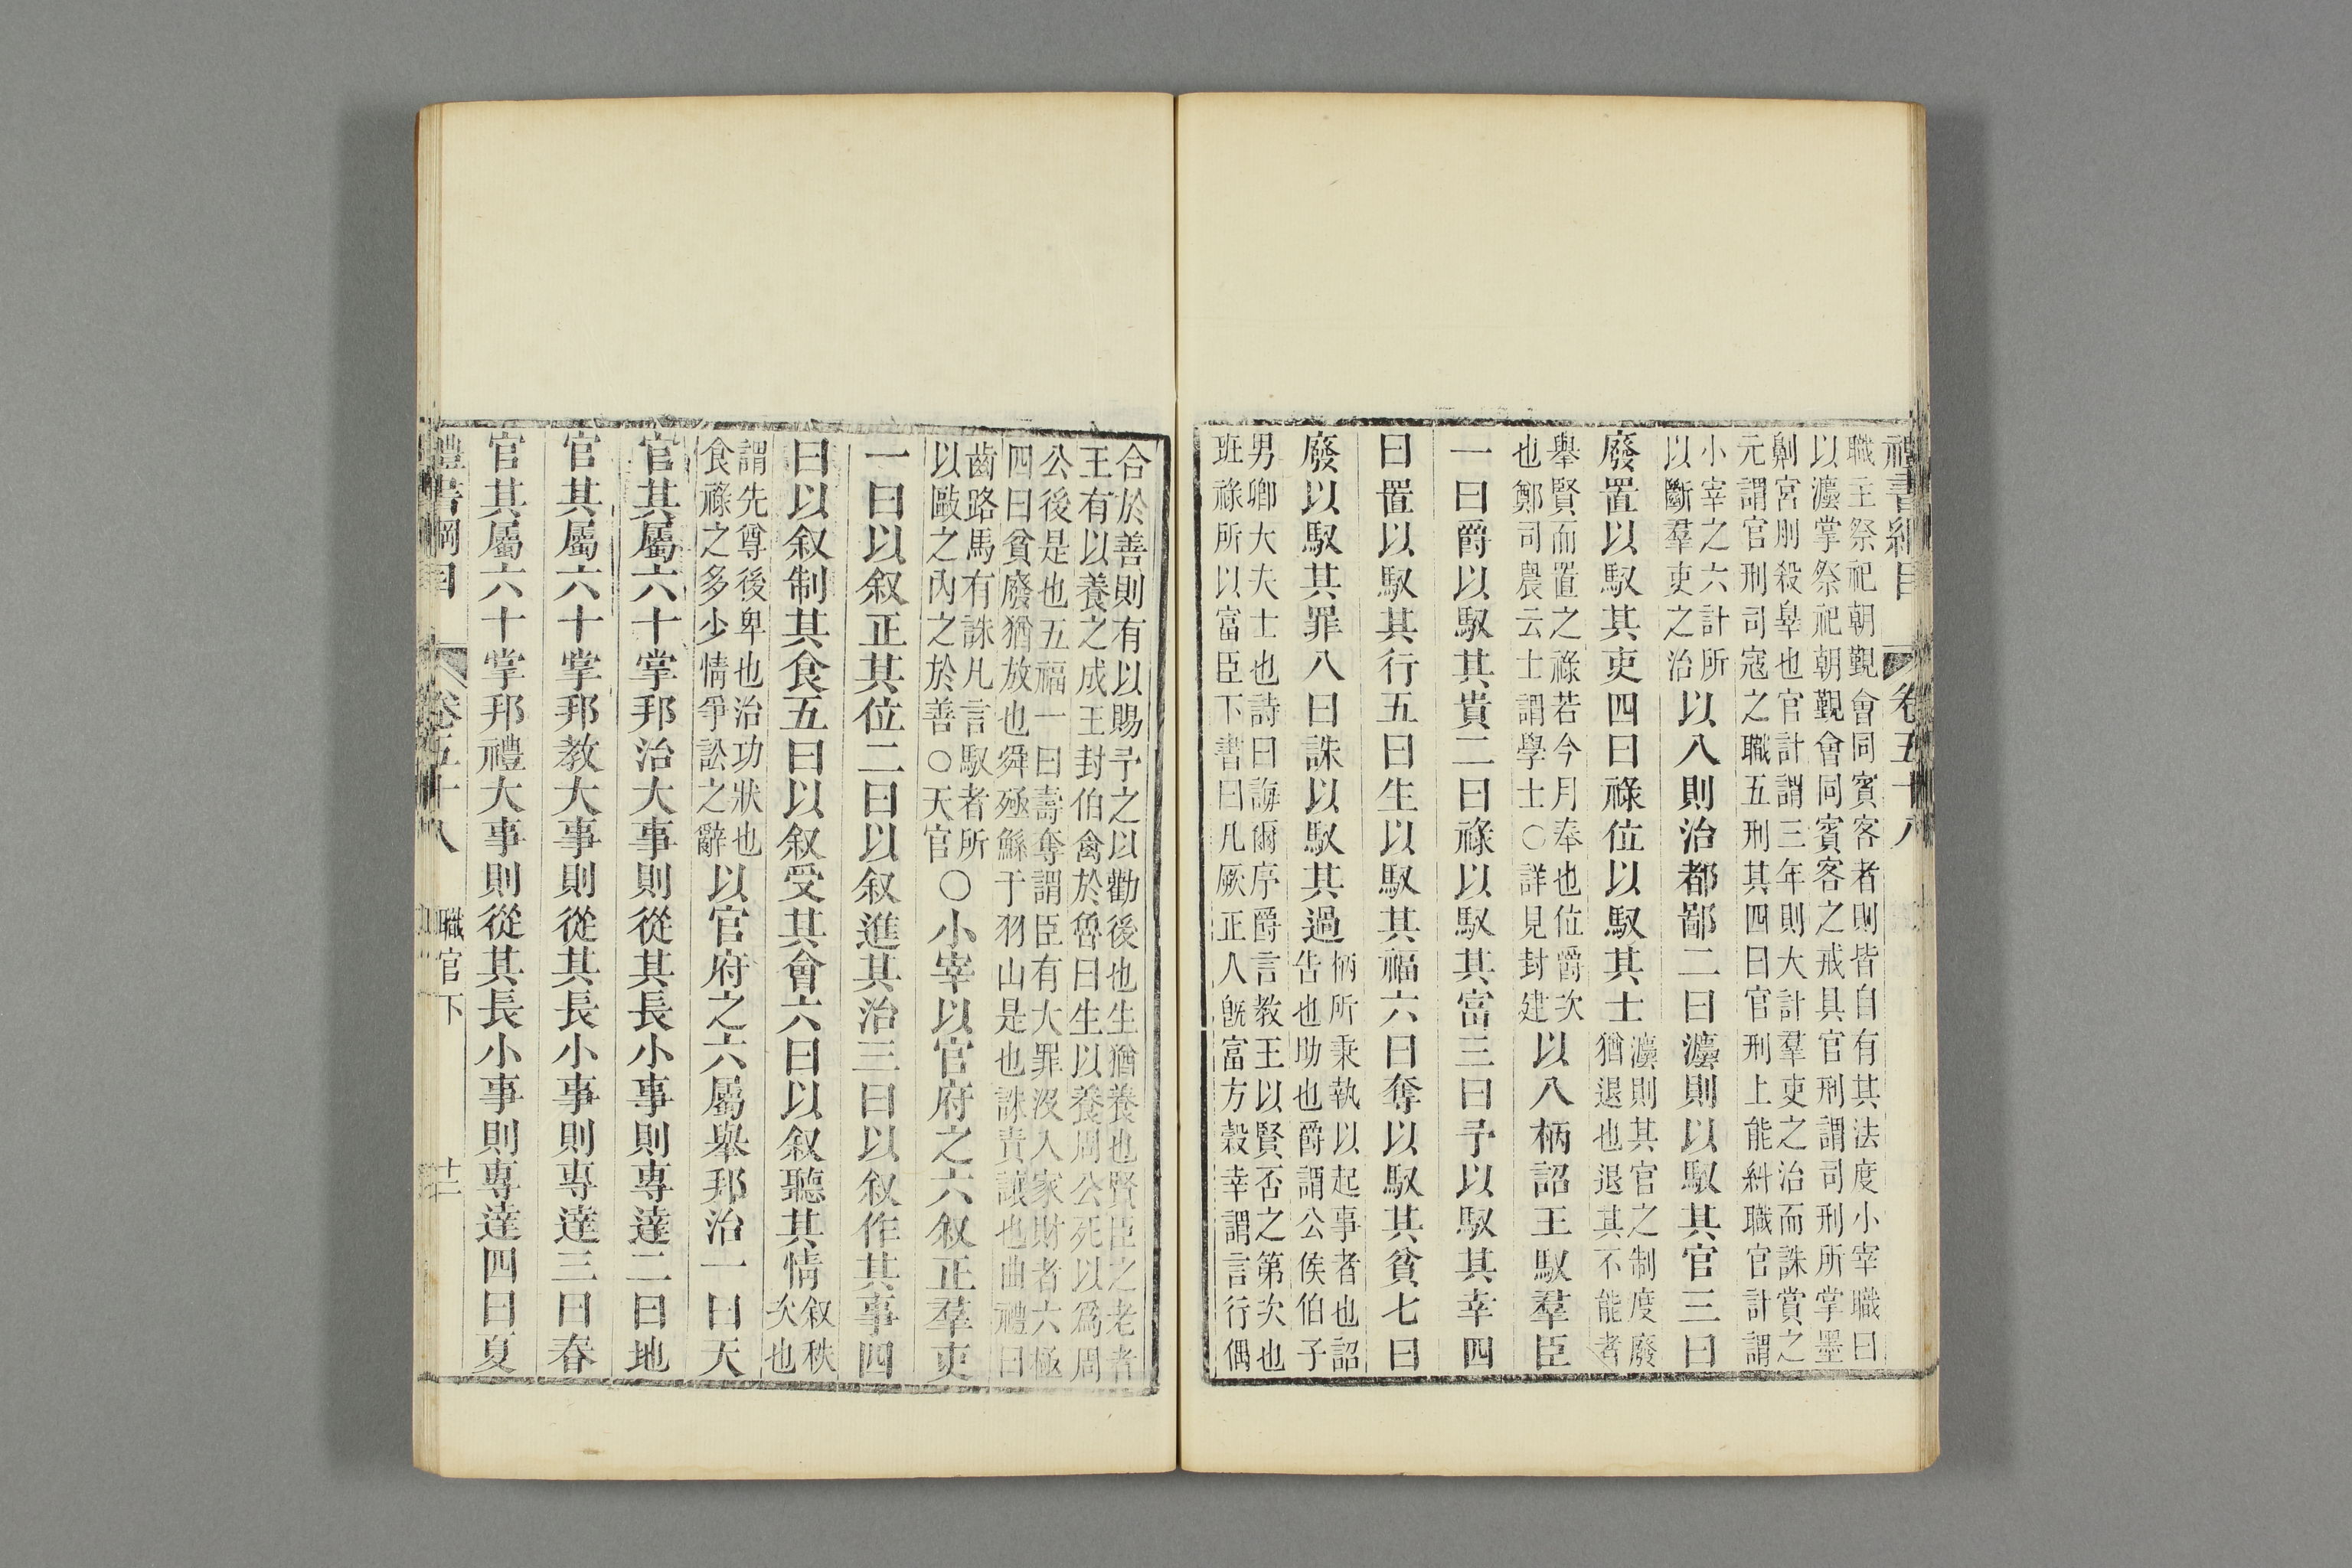 禮書綱目 卷五十八
職主祭祀朝覲會同賓客者則皆自有其法度小宰職曰
以灋掌祭祀朝覲會同賓客之戒具官刑謂司刑所掌墨
劓宮刖殺辠也官計謂三年則大計羣吏之治而誅賞之
元謂官刑司寇之職五刑其四曰官刑上能糾職官計謂
小宰之六計所
以斷羣吏之治
以八則治都鄙二曰灋則以馭其官三曰
廢置以馭其吏四曰祿位以馭其士
灋則其官之制度廢
猶退也退其不能者
舉賢而置之祿若今月奉也位爵次
也鄭司農云士謂學士○詳見封建
以八柄詔王馭羣臣
一曰爵以馭其貴二曰祿以馭其富三曰予以馭其幸四
曰置以馭其行五曰生以馭其福六曰奪以馭其貧七曰
廢以馭其罪八曰誅以馭其過
柄所秉執以起事者也詔
告也助也爵謂公侯伯子
男卿大夫士也詩曰誨爾序爵言教王以賢否之第次也
班祿所以富臣下書曰凡厥正人旣富方穀幸謂言行偶
合於善則有以賜予之以勸後也生猶養也賢臣之老者
王有以養之成王封伯禽於魯曰生以養周公死以爲周
公後是也五福一曰壽奪謂臣有大罪沒入家財者六極
四曰貧廢猶放也舜殛鯀于羽山是也誅責讓也曲禮曰
齒路馬有誅凡言馭者所
以敺之內之於善○天官
○小宰以官府之六叙正羣吏
一曰以叙正其位二曰以叙進其治三曰以叙作其事四
曰以叙制其食五曰以叙受其會六曰以叙聽其情
叙秩
次也
謂先尊後卑也治功狀也
食祿之多少情爭訟之辭
以官府之六屬舉邦治一曰天
官其屬六十掌邦治大事則從其長小事則専達二曰地
官其屬六十掌邦教大事則從其長小事則専達三曰春
官其屬六十掌邦禮大事則從其長小事則専達四曰夏
禮書綱目 卷五十八 職官下 十二